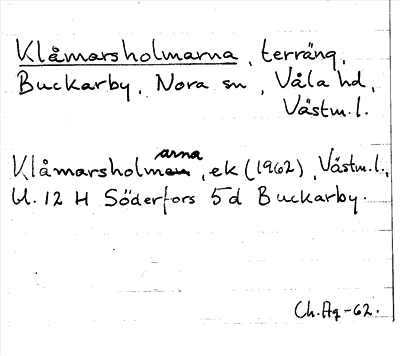 Klåmarsholmarna, terräng,
Buckarby, Nora sn, Våla hd,
Västm.l.
arna
Klåmarsholmen, ek (1962), Västm.l.,
bl. 12 H Söderfors 5d Buckarby.
Ch.Ag-62.